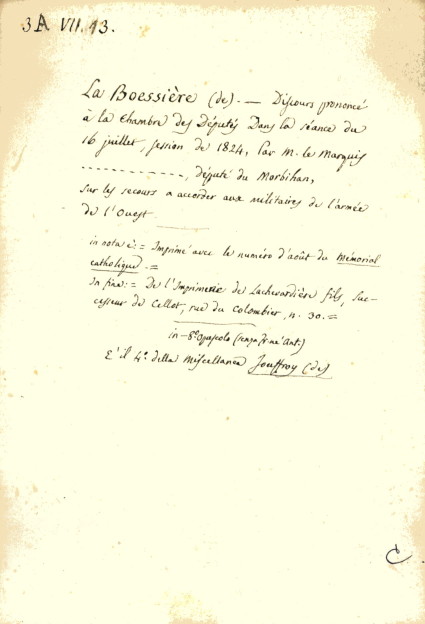 3A VII. 13.
La Boessière (de). — Discours prononcé
à la Chambre des Députés Dans la séance du
16 juillet, session de 1824, Par M. le Marquis
- - - - - - - - - - - -, député du Morbihan,
sur les secours a accorder aux militaires de l'armée
de l'Ouest
in nota è: = Imprimé avec le numéro d'août du Mémorial
catholique. =
In fine: = De l'Imprimerie de Lachevardière fils, Suc-
cesseur de Cellot, rue du Colombier, n. 30. =
in-8° Opuscolo (senza
E' il 4° della Miscellanea Jouffroy (de)
C